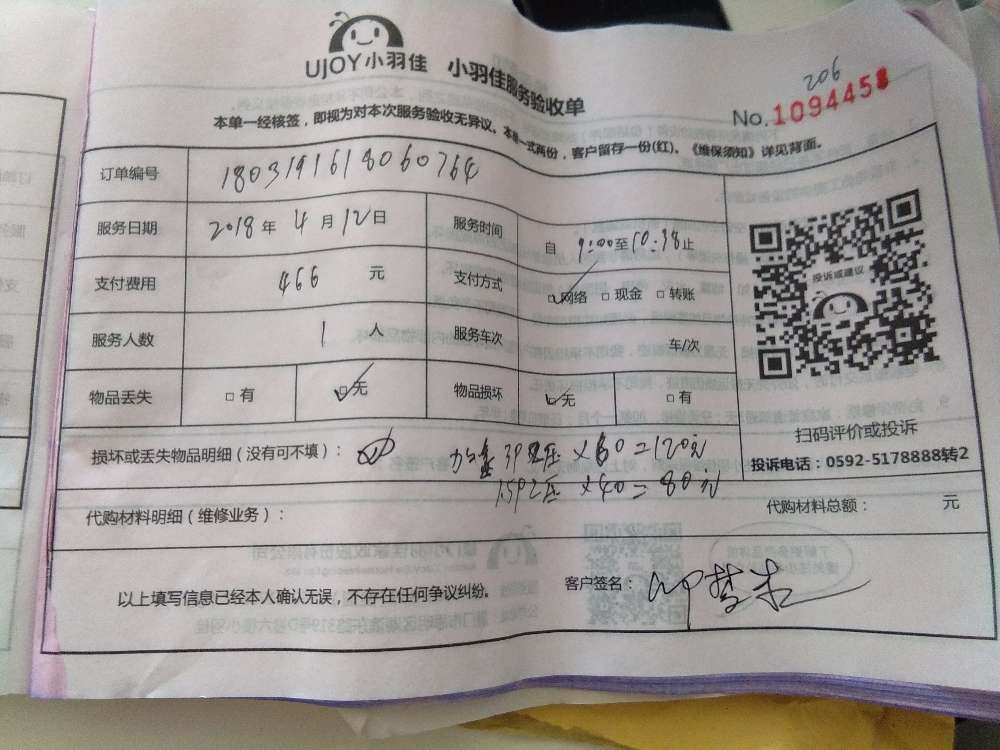 UJOY小羽佳 小羽佳服务验收单
206
No.1094458
本单一经核签，即视为对本次服务验收无异议。本单一式两份，客户留存一份(红)、《维保须知》详见背面。
订单编号 18031916180607764
服务日期 2018年 4月 12日 服务时间 自 9:00至10:38止
支付费用 466 元 支付方式 网络 现金 转账
服务人数 1 人 服务车次 车/次
物品丢失 有 无 物品损坏 无 有
投诉或建议
扫码评价或投诉
投诉电话：0592-5178888转2
损坏或丢失物品明细（没有可不填）： 加 3P 压 ×60=120元
1.5P2压 ×40=80元
代购材料明细（维修业务）： 代购材料总额： 元
以上填写信息已经本人确认无误，不存在任何争议纠纷。 客户签名：